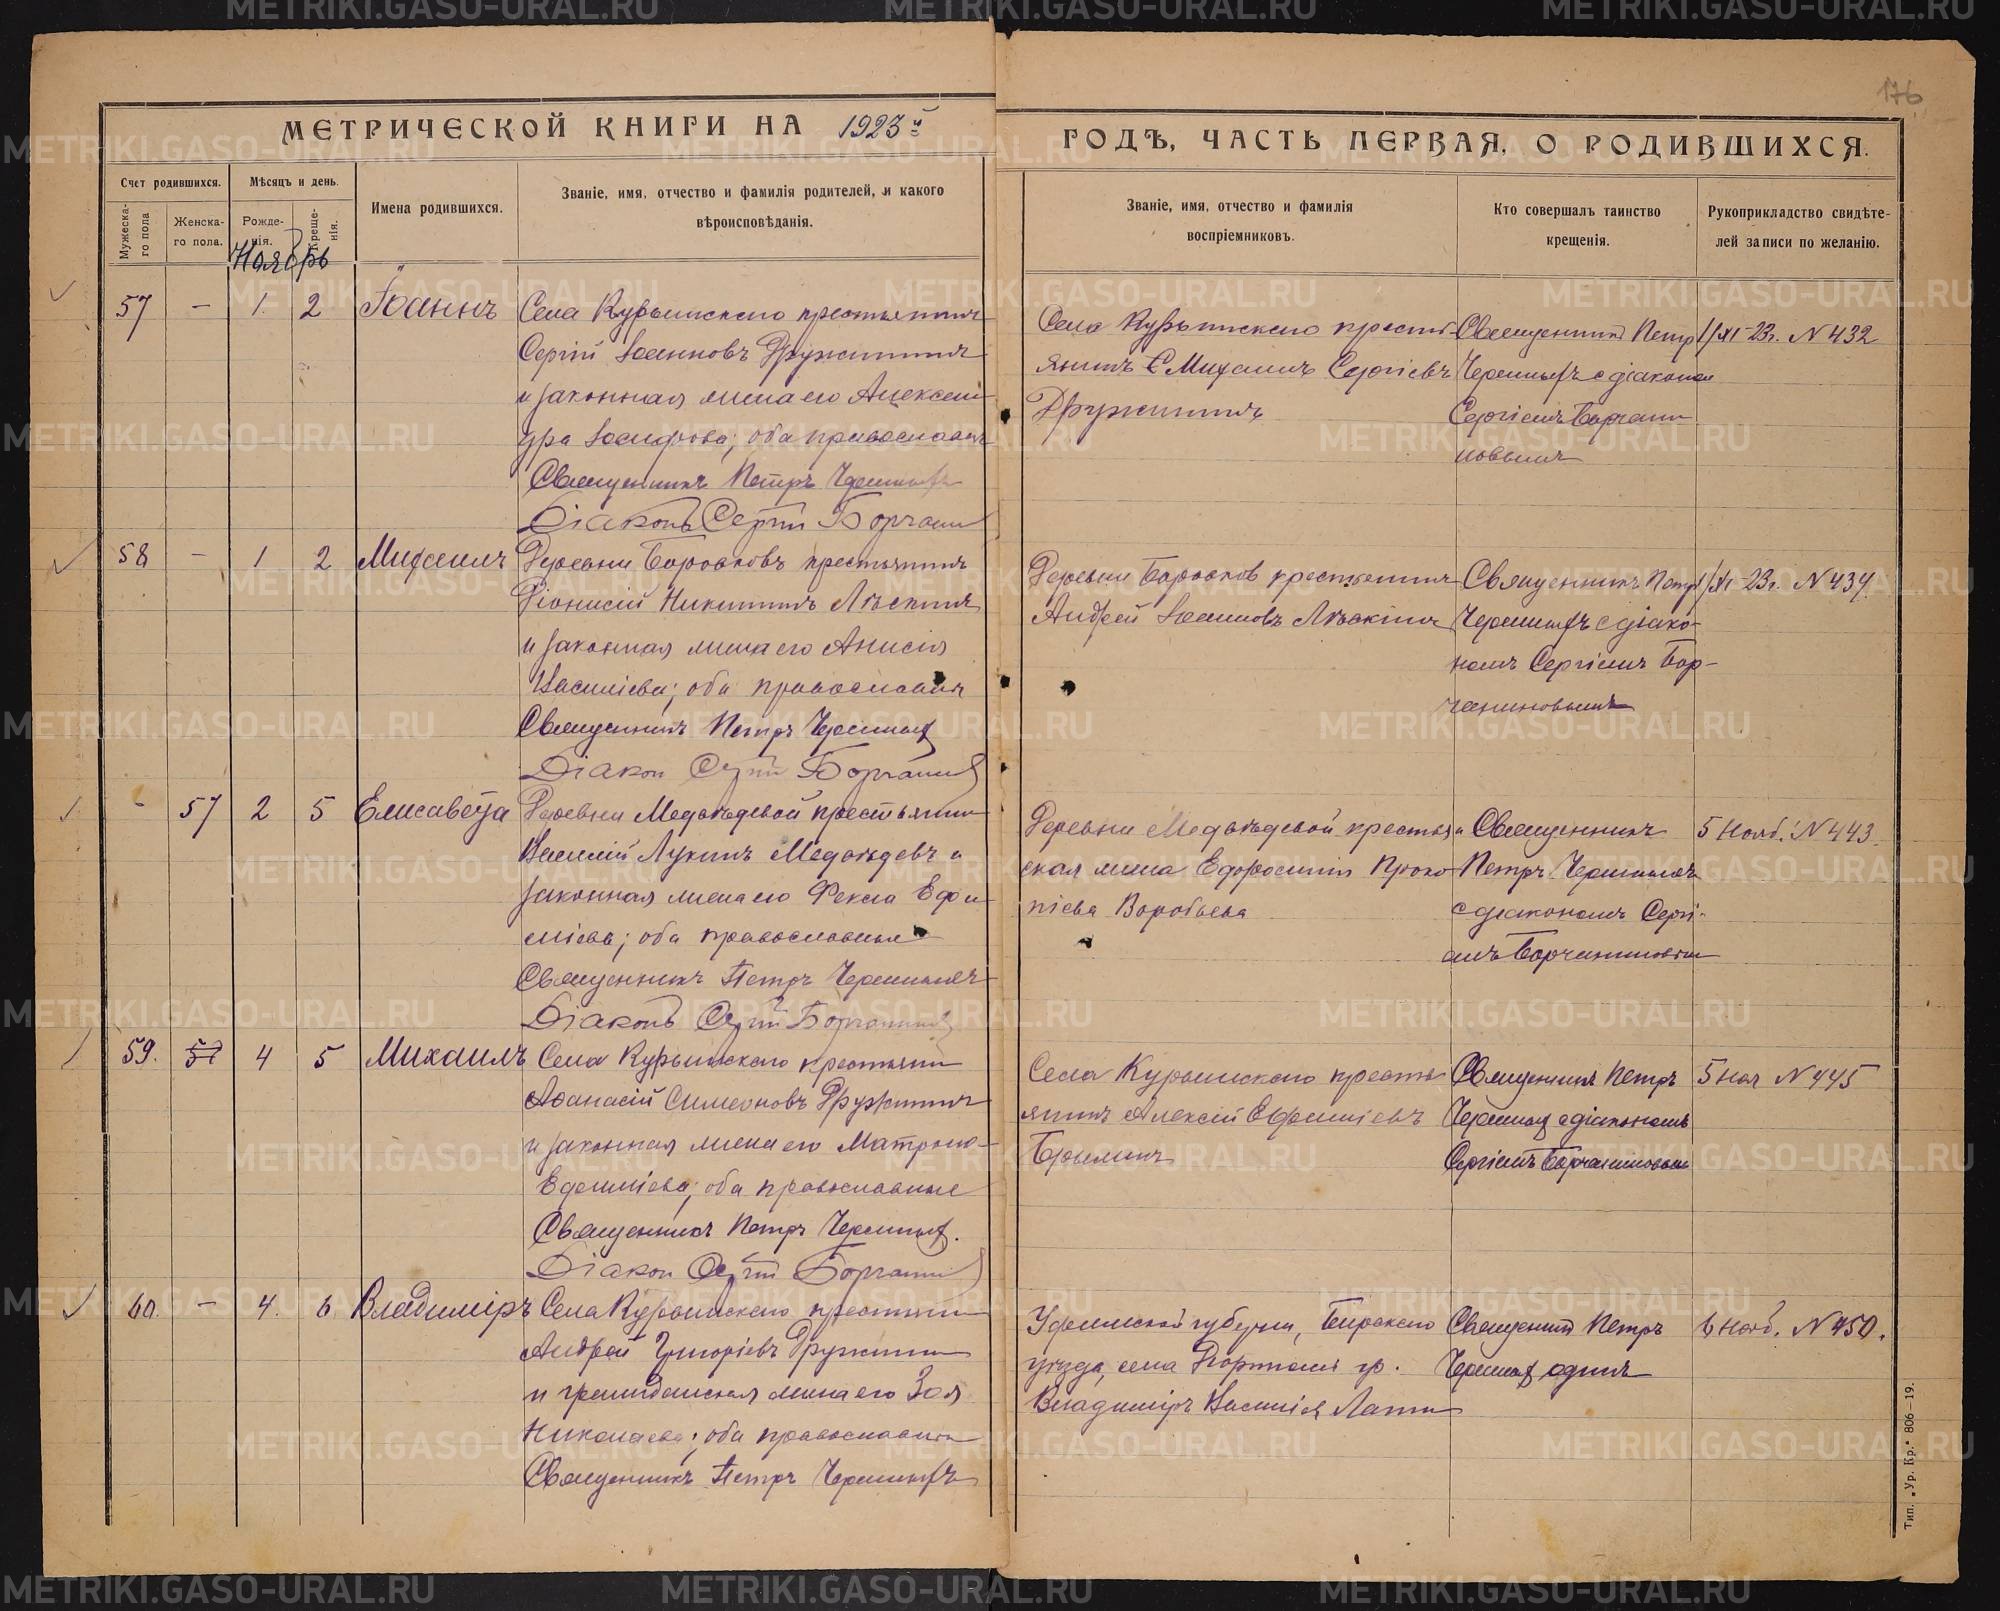 176
МЕТРИЧЕСКОЙ КНИГИ НА 1923й
ГОДѢ, ЧАСТЬ ПЕРВАЯ, О РОДИВШИХСЯ.
Счет родившихся.
Мужеска-
го пола
Женска-
го пола.
Мѣсяцъ и день.
Рожде-
нія.
Креще-
нія.
Имена родившихся.
Званіе, имя, отчество и фамилія родителей, и какого
вѣроисповѣданія.
Званіе, имя, отчество и фамилія
воспріемниковъ.
Кто совершалъ таинство
крещенія.
Рукоприкладство свидѣте-
лей записи по желанію.
Ноябрь
57 - 1. 2 Іоаннъ
Села Курьинскаго крестьянинъ
Сергій Іоанновъ Дружининъ
и законная жена его Алексан-
дра Іосифова; оба православн
Священникъ Петръ Черемныхъ
Діаконъ Сергій Борчани
Села Курьинскаго кресть-
янинъ Михаилъ Сергіевъ
Дружининъ
Священникъ Петр
Черемныхъ с діакономъ
Сергіемъ Борчани
новымъ
1/XI-23г. N 432
58 - 1 2 Михаилъ
Деревни Боровковъ крестьянинъ
Діонисій Никитинъ Лѣскинъ
и законная жена его Анисія
Василіева; оба православн
Священникъ Петръ Черемныхъ
Діакон Сергій Борчанин
Деревни Боровков крестьянинъ
Андрей Іоанновъ Лѣскинъ
Священникъ Петр
Черемныхъ с діако-
номъ Сергіемъ Бор-
чаниновымъ
1/XI-23г. N 434
- 57 2 5 Елисавета
Деревни Медвѣдевой крестьянин
Василій Лукинъ Медвѣдевъ и
законная жена его Фекла Ефи-
міева; оба православные
Священникъ Петръ Черемныхъ
Діаконъ Сергій Борчанинов
Деревни Медвѣдевой крестья
ская жена Ефросинія Проко-
піева Воробьева
Священникъ
Петръ Черемныхъ
с діакономъ Сергі-
емъ Борчаниновым
5 Нояб. N 443
59. 57 4 5 Михаилъ
Села Курьинскаго крестьянин
Афанасій Симеоновъ Дружининъ
и законная жена его Матрона
Ефиміева; оба православные
Священникъ Петръ Черемных.
Діакон Сергій Борчанин
Села Курьинскаго кресть
янинъ Алексій Ефиміевъ
Брылинъ
Священникъ Петръ
Черемных с діакономъ
Сергіемъ Борчаниновым
5 Ноя N 445
60. - 4. 6. Владиміръ
Села Курьинскаго крестьянин
Андрей Григоріевъ Дружинин
и гражданская жена его Зоя
Николаева; оба православные
Священникъ Петръ Черемныхъ
Уфимской губерніи, Бирскаго
уѣзда, села гр.
Владиміръ Василіев
Священник Петръ
Черемных одинъ
6 Нояб. N 450.
Тип. „Ур. Кр.“ 806—19.
METRIKI.GASO-URAL.RU